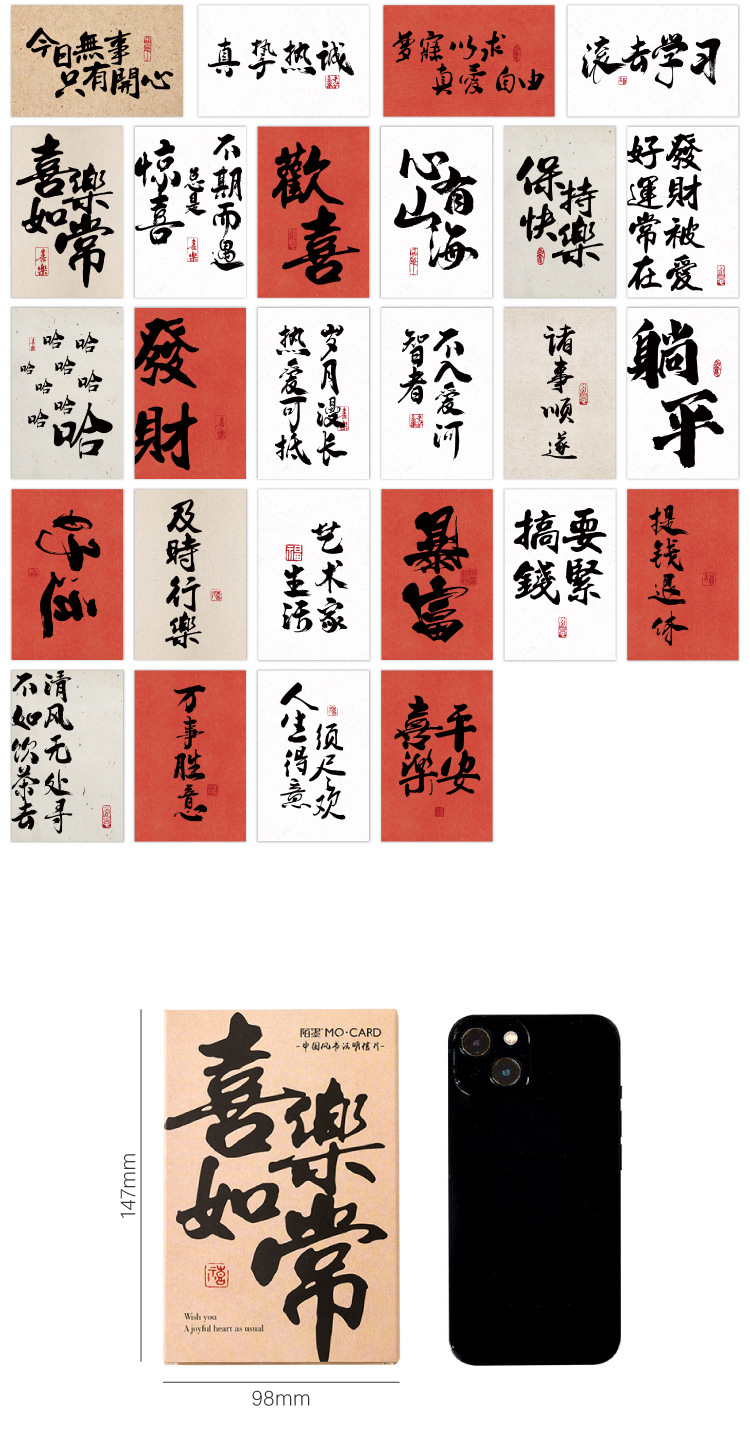 今日無事
只有開心
真挚热诚
梦寐以求
真愛自由
滚去学习
喜樂
如常
不期而遇
总是
惊喜
歡喜
心有
山海
保持
快樂
發財被愛
好運常在
哈哈
哈哈哈
哈哈
哈哈
發財
岁月漫长
热爱可抵
不入爱河
智者
诸事順遂
躺平
及時行樂
艺术家
生活
福
暴富
搞錢
要緊
提钱退休
清风无处寻
不如饮茶去
万事胜意
人生得意
须尽欢
平安
喜樂
陌墨 MO·CARD
-中国风书法明信片-
喜樂
如常
禧
Wish you
A joyful heart as usual
147mm
98mm